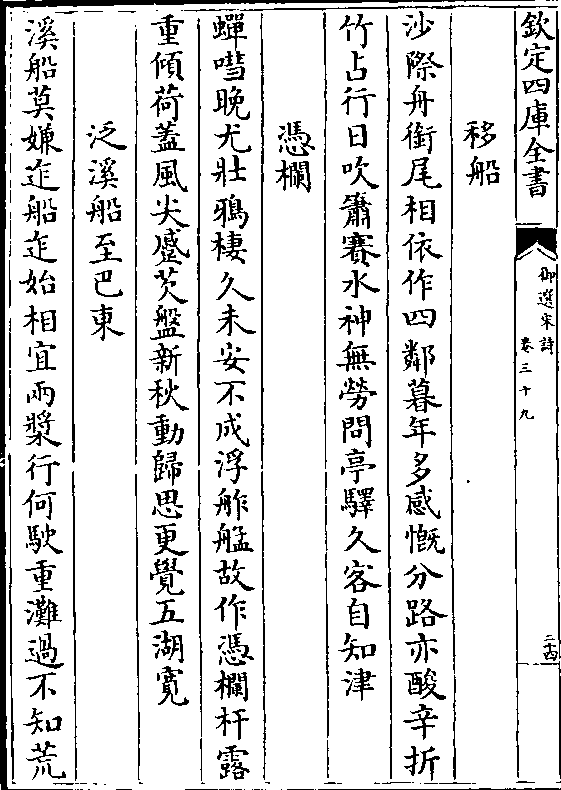 欽定四庫全書
御選宋詩
卷三十九
二十四
移船
沙際舟銜尾相依作四鄰暮年多感慨分路亦酸辛折
竹占行日吹簫賽水神無勞問亭驛久客自知津
憑欄
蟬嘒晚尤壯鴉棲久未安不成浮舴艋故作憑欄杆露
重傾荷蓋風尖蹙芡盤新秋動歸思更覺五湖寬
泛溪船至巴東
溪船莫嫌迮船迮始相宜兩槳行何駛重灘過不知荒